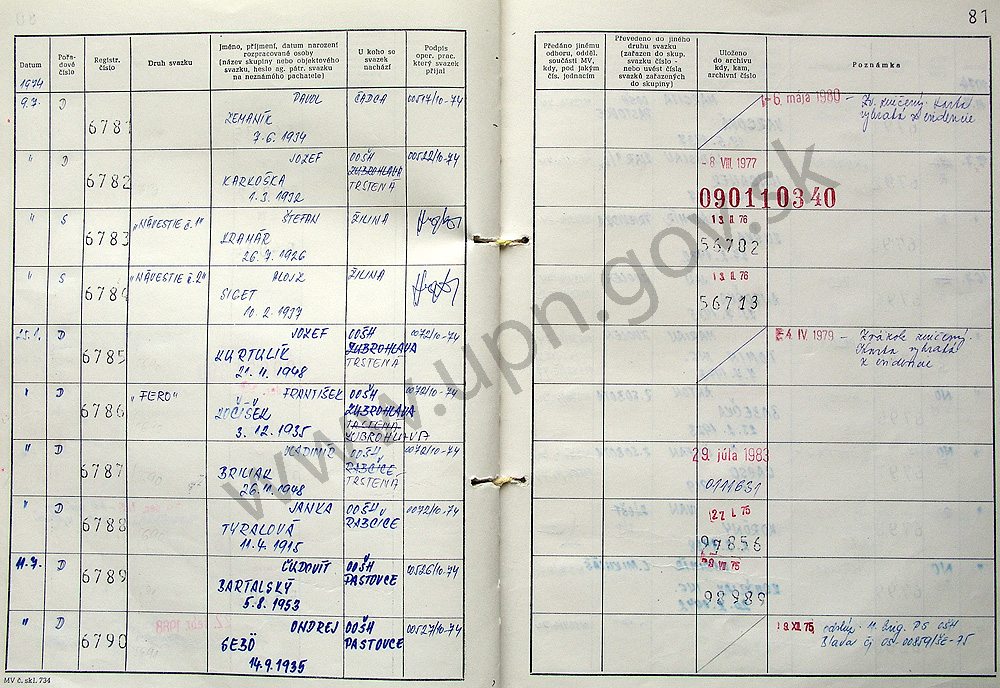 81
Datum
Pořadové číslo
Registr. číslo
Druh svazku
Jméno, příjmení, datum narození rozpracované osoby (název skupiny nebo objektového svazku, heslo ag. pátr. svazku na neznámého pachatele)
U koho se svazek nachází
Podpis oper. prac. který svazek přijal
Předáno jinému odboru, odděl. součásti MV, kdy, pod jakým čís. jednacím
Převedeno do jiného druhu svazku (zařazen do skup. svazku číslo - nebo uvést čísla svazků zařazených do skupiny)
Uloženo do archivu kdy, kam, archivní číslo
Poznámka
1974
9.7. D 6781 PAVOL ČADCA 00517/10-74 -6. mája 1980
ZEMANÍK
7.6.1934
" D 6782 JOZEF OOŠH 00522/10-74 -8 VIII. 1977
KARKOŠKA ZUBROHLAVA 090110340
1.3.1932 TRSTENÁ
" S 6783 "NÁVESTIE č.1" ŠTEFAN ŽILINA 13 II 76
KRAMÁR 56702
26.7.1926
" S 6784 "NÁVESTIE č.2" ALOJZ ŽILINA 13 II 76
SIGET 56713
10.2.1937
D 6785 JOZEF OOŠH 0072/10-74 4 IV. 1979
KURTULÍK ZUBROHLAVA
21.11.1948 TRSTENÁ
" D 6786 "FERO" FRANTIŠEK OOŠH 0072/10-74
ZUBROHLAVA
3.12.1935 TRSTENÁ
ZUBROHLAVA
" D 6787 VLADIMÍR OOŠH 0072/10-74 29. júla 1983
BRILIAK RABČICE 0111631
26.11.1948 TRSTENÁ
" D 6788 JANKA OOŠH 0072/10-74 75
TYRALOVÁ RABČICE 97856
11.4.1915
D 6789 ĽUDOVÍT OOŠH 00526/10-74 VII. 75
BARTALSKÝ PASTOVCE 98989
5.8.1953
" D 6790 ONDREJ OOŠH 00527/10-74 19 XII 75
GEBÖ PASTOVCE
14.9.1935
MV č. skl. 734
www.upn.gov.sk